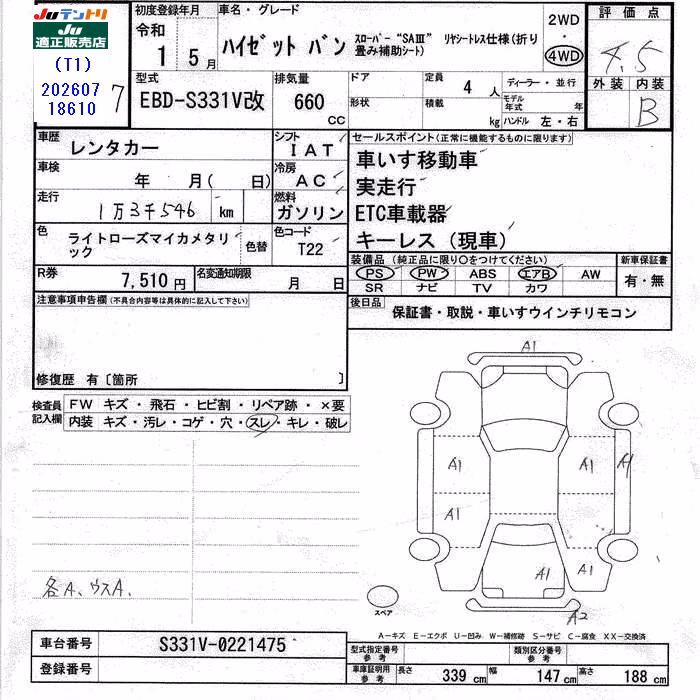 Juテントリ
Ju適正販売店
(T1)
202607
18610
7
初度登録年月
令和
1 5月
車名・グレード
ハイゼット バン
スローパー“SAⅢ” リヤシートレス仕様(折り畳み補助シート)
2WD
・
4WD
評価点
4.5
外装 内装
B
型式
EBD-S331V改
排気量
660
CC
ドア
形状
定員
4 人
積載
kg
ディーラー・並行
モデル年式
年
ハンドル 左・右
車歴
レンタカー
シフト
IAT
車検
年 月( 日)
冷房
AC
走行
1万3千546 km
燃料
ガソリン
色
ライトローズマイカメタリック
色替
色コード
T22
R券
7,510円
名変通知期限
月 日
セールスポイント(正常に機能するものに限ります)
車いす移動車
実走行
ETC車載器
キーレス(現車)
装備品(純正品に限り○をつけてください)
PS PW ABS エアB AW
SR ナビ TV カワ
新車保証書
有・無
後日品
保証書・取説・車いすウインチリモコン
注意事項申告欄(不具合内容等は具体的に記入して下さい)
修復歴 有〔箇所 〕
検査員記入欄
FW キズ・飛石・ヒビ割・リペア跡・×要
内装 キズ・汚レ・コゲ・穴・スレ・キレ・破レ
各A、ウスA、
A1
A1
A1
A1
A1
A1
A1
A2
スペア
A-キズ E-エクボ U-凹み W-補修跡 S-サビ C-腐食 XX-交換済
車台番号
S331V-0221475
登録番号
型式指定番号
参考
類別区分番号
参考
車庫証明用
参考
長さ 339 cm 幅 147 cm 高さ 188 cm